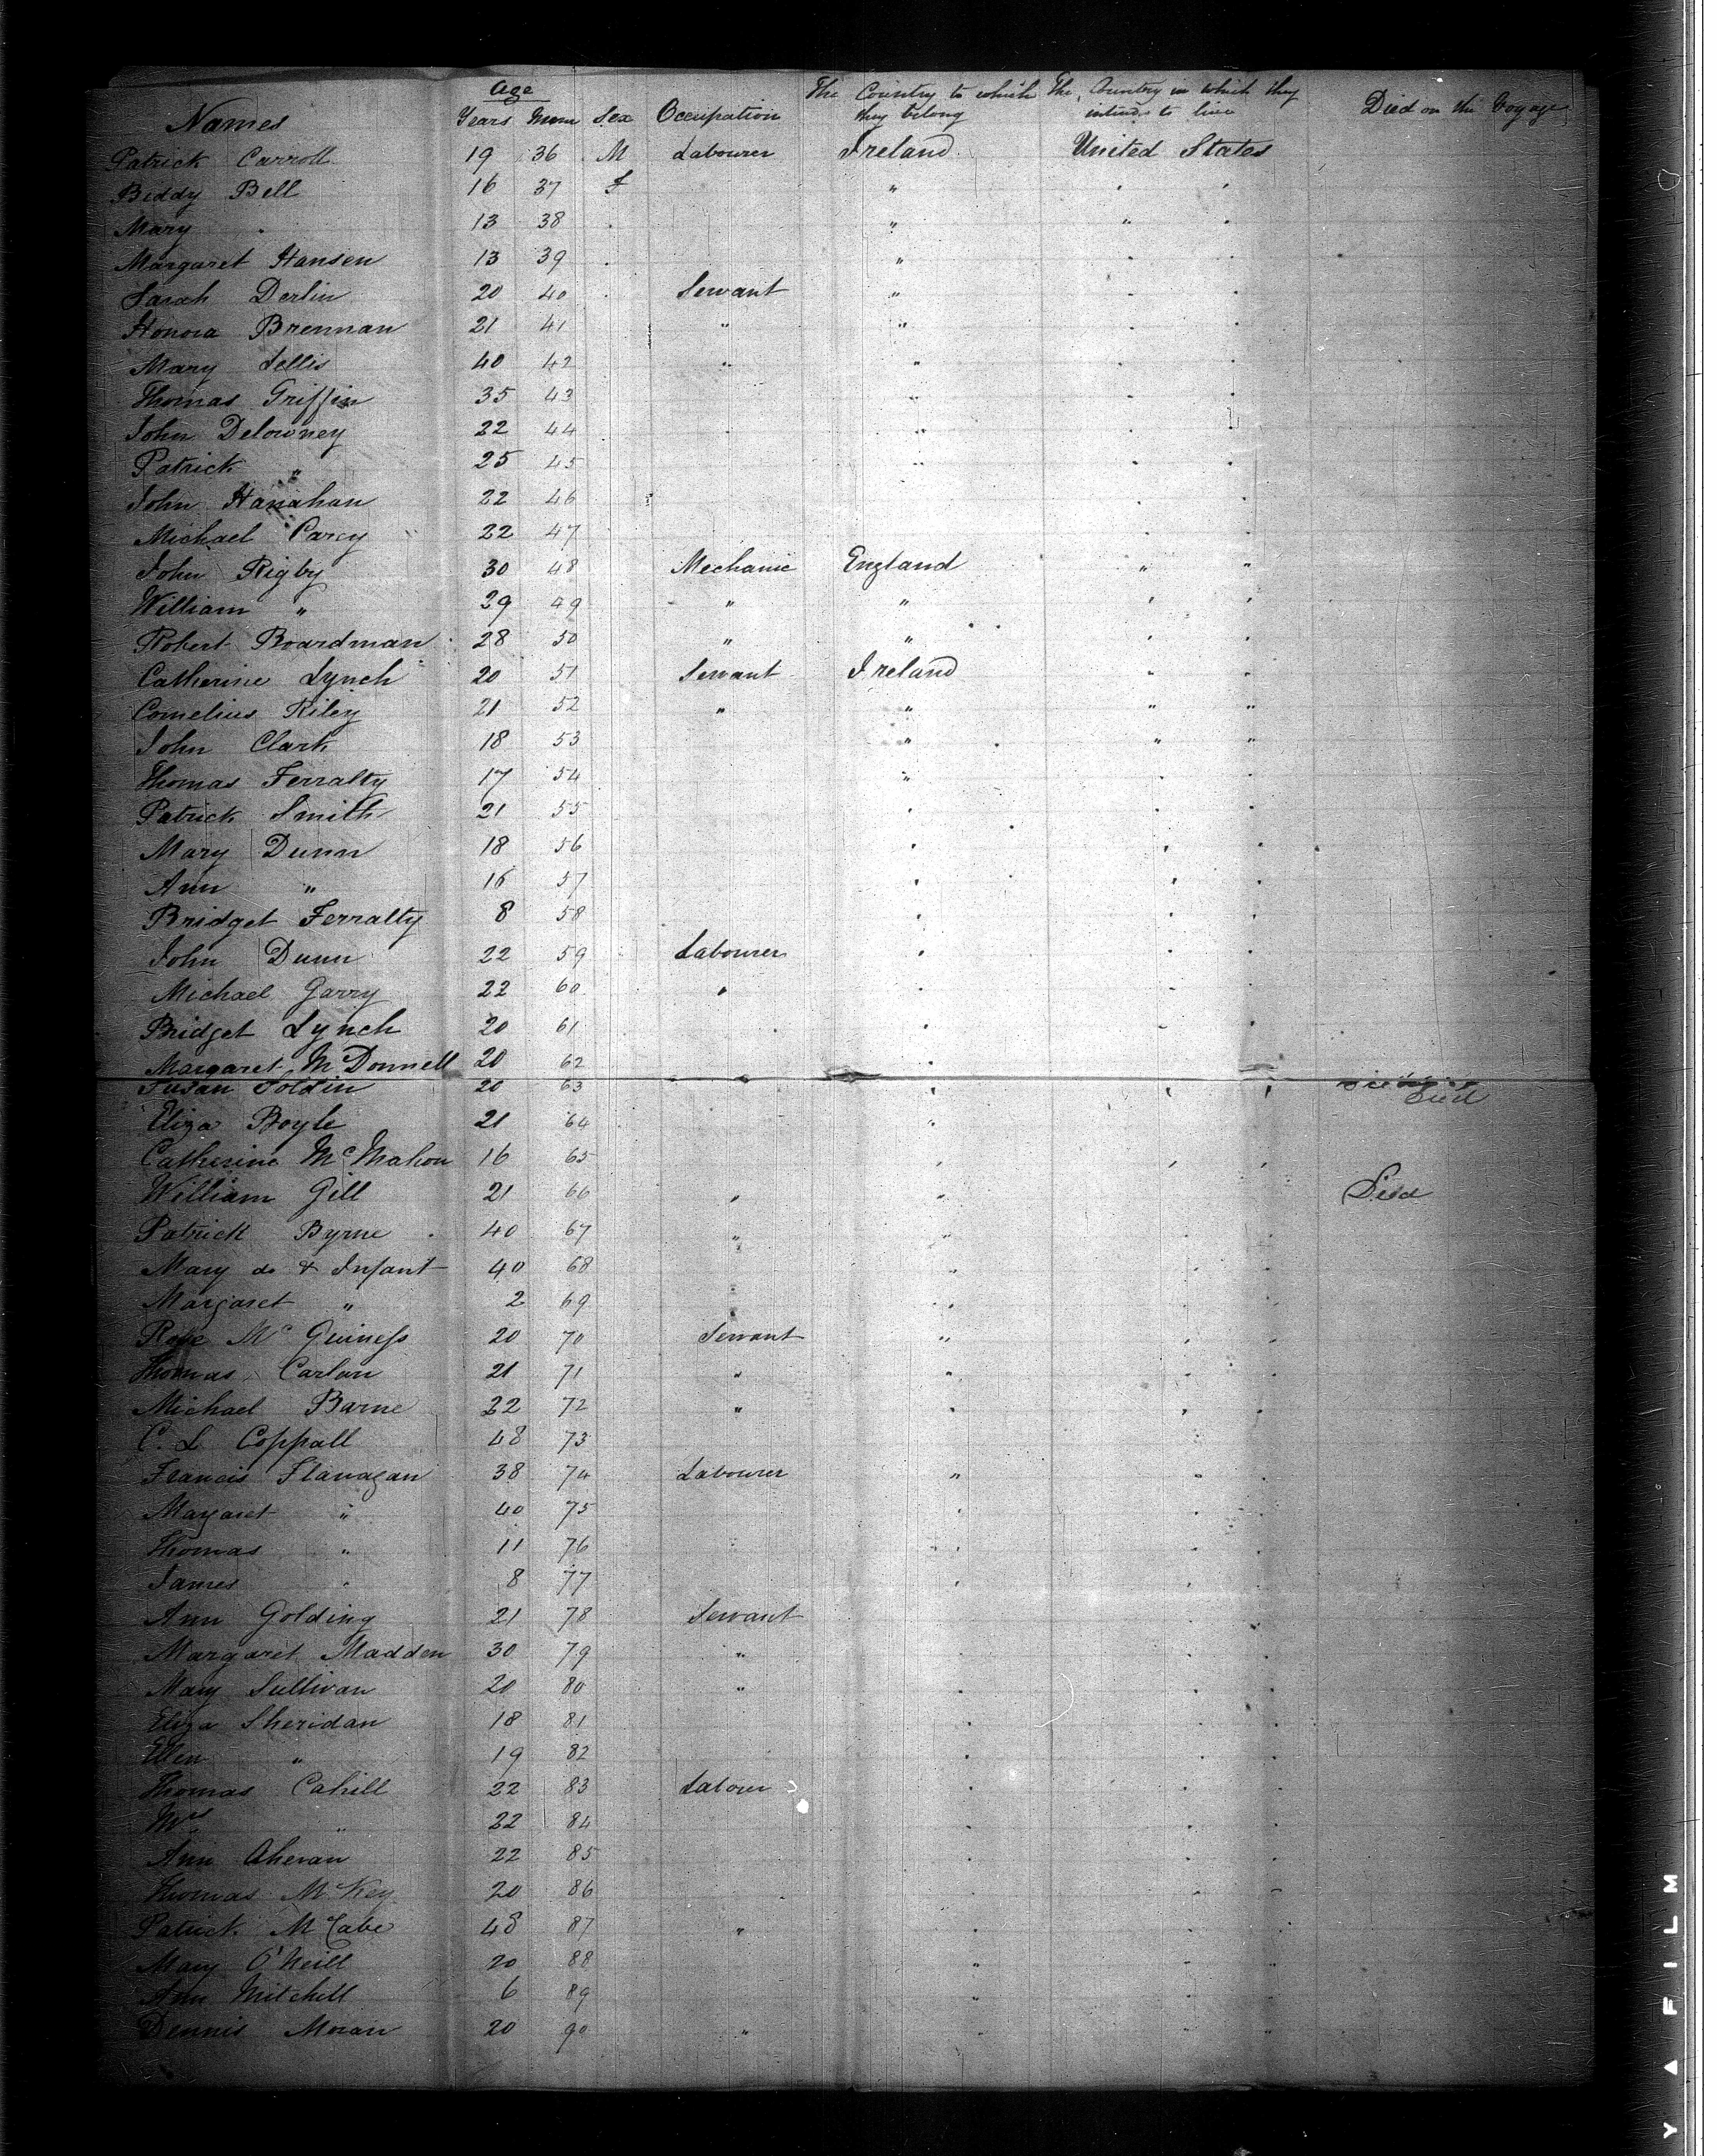 Age
The Country to which The Country in which they
Names Years Mum Sex Occupation they belong intend to live Died on the Voyage
Patrick Carroll 19 36 M Labourer Ireland United States
Biddy Bell 16 37 F " " "
Mary " 13 38 " " " "
Margaret Hansen 13 39 " " " "
Sarah Derlin 20 40 " Servant " " "
Honora Brennan 21 41 " " " "
Mary Lellis 40 42 " " " "
Thomas Griffin 35 43 " " "
John Delowney 22 44 " " "
Patrick " 25 45 " " "
John Hanahan 22 46 " "
Michael Parcy 22 47 " "
John Rigby 30 48 Mechanic England " "
William " 29 49 " " " "
Robert Boardman 28 50 " " " "
Catherine Lynch 20 51 Servant Ireland " "
Cornelius Riley 21 52 " " " "
John Clark 18 53 " " "
Thomas Ferralty 17 54 " " "
Patrick Smith 21 55 " " "
Mary Dunn 18 56 " " "
Ann " 16 57 " " "
Bridget Ferralty 8 58 " " "
John Dunn 22 59 Labourer " " "
Michael Garry 22 60 " " " "
Bridget Lynch 20 61 " " "
Margaret McDonnell 20 62 "
Susan 20 63 " " " Died
Eliza Boyle 21 64 "
Catherine McMahon 16 65 " " "
William Gill 21 66 " " Died
Patrick Byrne 40 67 " " " "
Mary do & Infant 40 68 " " "
Margaret " 2 69 " " "
Rose McGuiness 20 70 Servant " " "
Thomas Carlan 21 71 " " " "
Michael Barne 22 72 " " " "
C. L Coppall 48 73
Francis Flanagan 38 74 Labourer " " "
Margaret " 40 75 " " "
Thomas " 11 76 " " "
James " 8 77 " " "
Ann Golding 21 78 Servant " "
Margaret Madden 30 79 " " " "
Mary Sullivan 20 80 " " " "
Eliza Sheridan 18 81 " " "
Ellen " 19 82 " " "
Thomas Cahill 22 83 Labour " " "
Mrs " 22 84 " " "
Ann Aheran 22 85 " " "
Thomas McKey 20 86 " "
Patrick McCabe 48 87 " " " "
Mary O'Neill 20 88 " " "
Ann Mitchell 6 89 " " "
Dennis Moran 20 90 " " " "
Y A F I L M